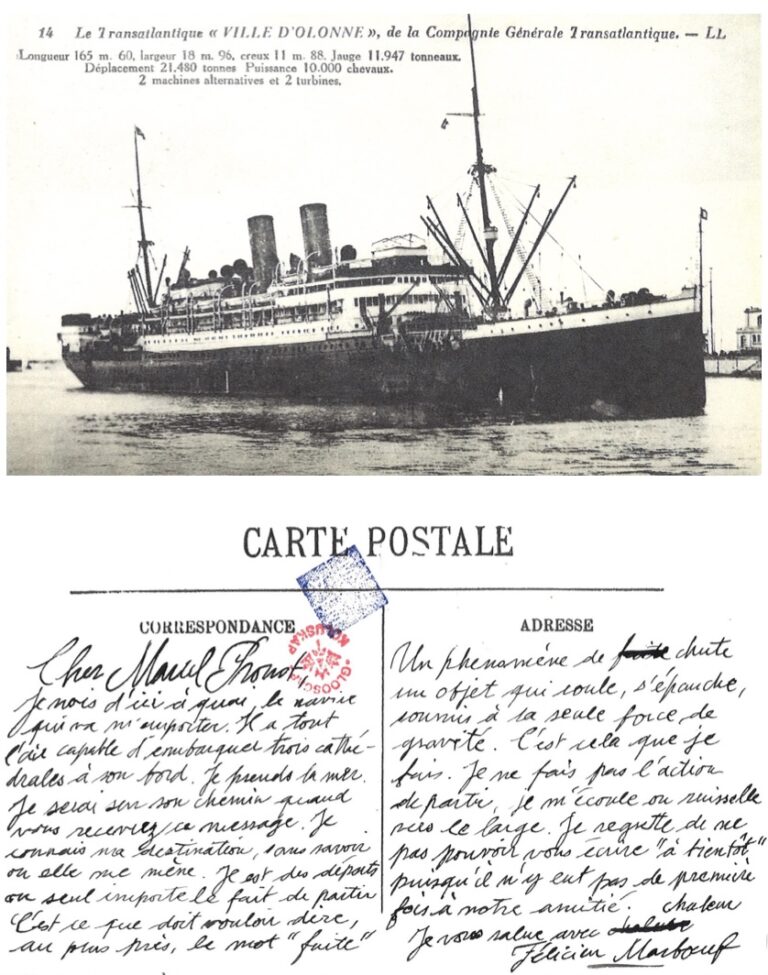 14 Le Transatlantique « VILLE D'OLONNE », de la Compagnie Générale Transatlantique. — LL
Longueur 165 m. 60, largeur 18 m. 96, creux 11 m. 88. Jauge 11.947 tonneaux.
Déplacement 21.480 tonnes Puissance 10.000 chevaux.
2 machines alternatives et 2 turbines.
CARTE POSTALE
CORRESPONDANCE
KOLUSKAP
Cher Marcel Proust,
Je vois d'ici à quai, le navire
qui va m'emporter. Il a tout
l'air capable d'embarquer trois cathé-
drales à son bord. Je prends la mer.
Je serai sur son chemin quand
vous recevrez ce message. Je
connais ma destination, sans savoir
où elle me mène. Il est des départs
où seul importe le fait de partir
C'est ce que doit vouloir dire,
au plus près, le mot "fuite"
ADRESSE
Un phénomène de fuite chute
un objet qui coule, s'épanche,
soumis à la seule force de
gravité. C'est cela que je
fuis. Je ne fais pas l'action
de partir, je m'écoule ou ruisselle
vers le large. Je regrette de ne
pas pouvoir vous écrire "à bientôt"
puisqu'il n'y eut pas de première
fois à notre amitié. chaleur
Je vous salue avec chaleur
Félicien Marboeuf